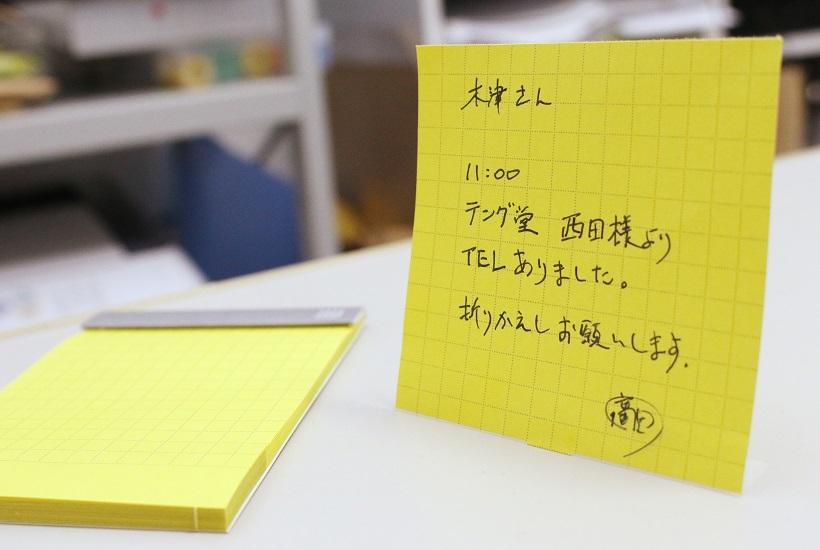 木津さん
11:00
テング堂 西田様より
TELありました。
折りかえしお願いします。
髙田